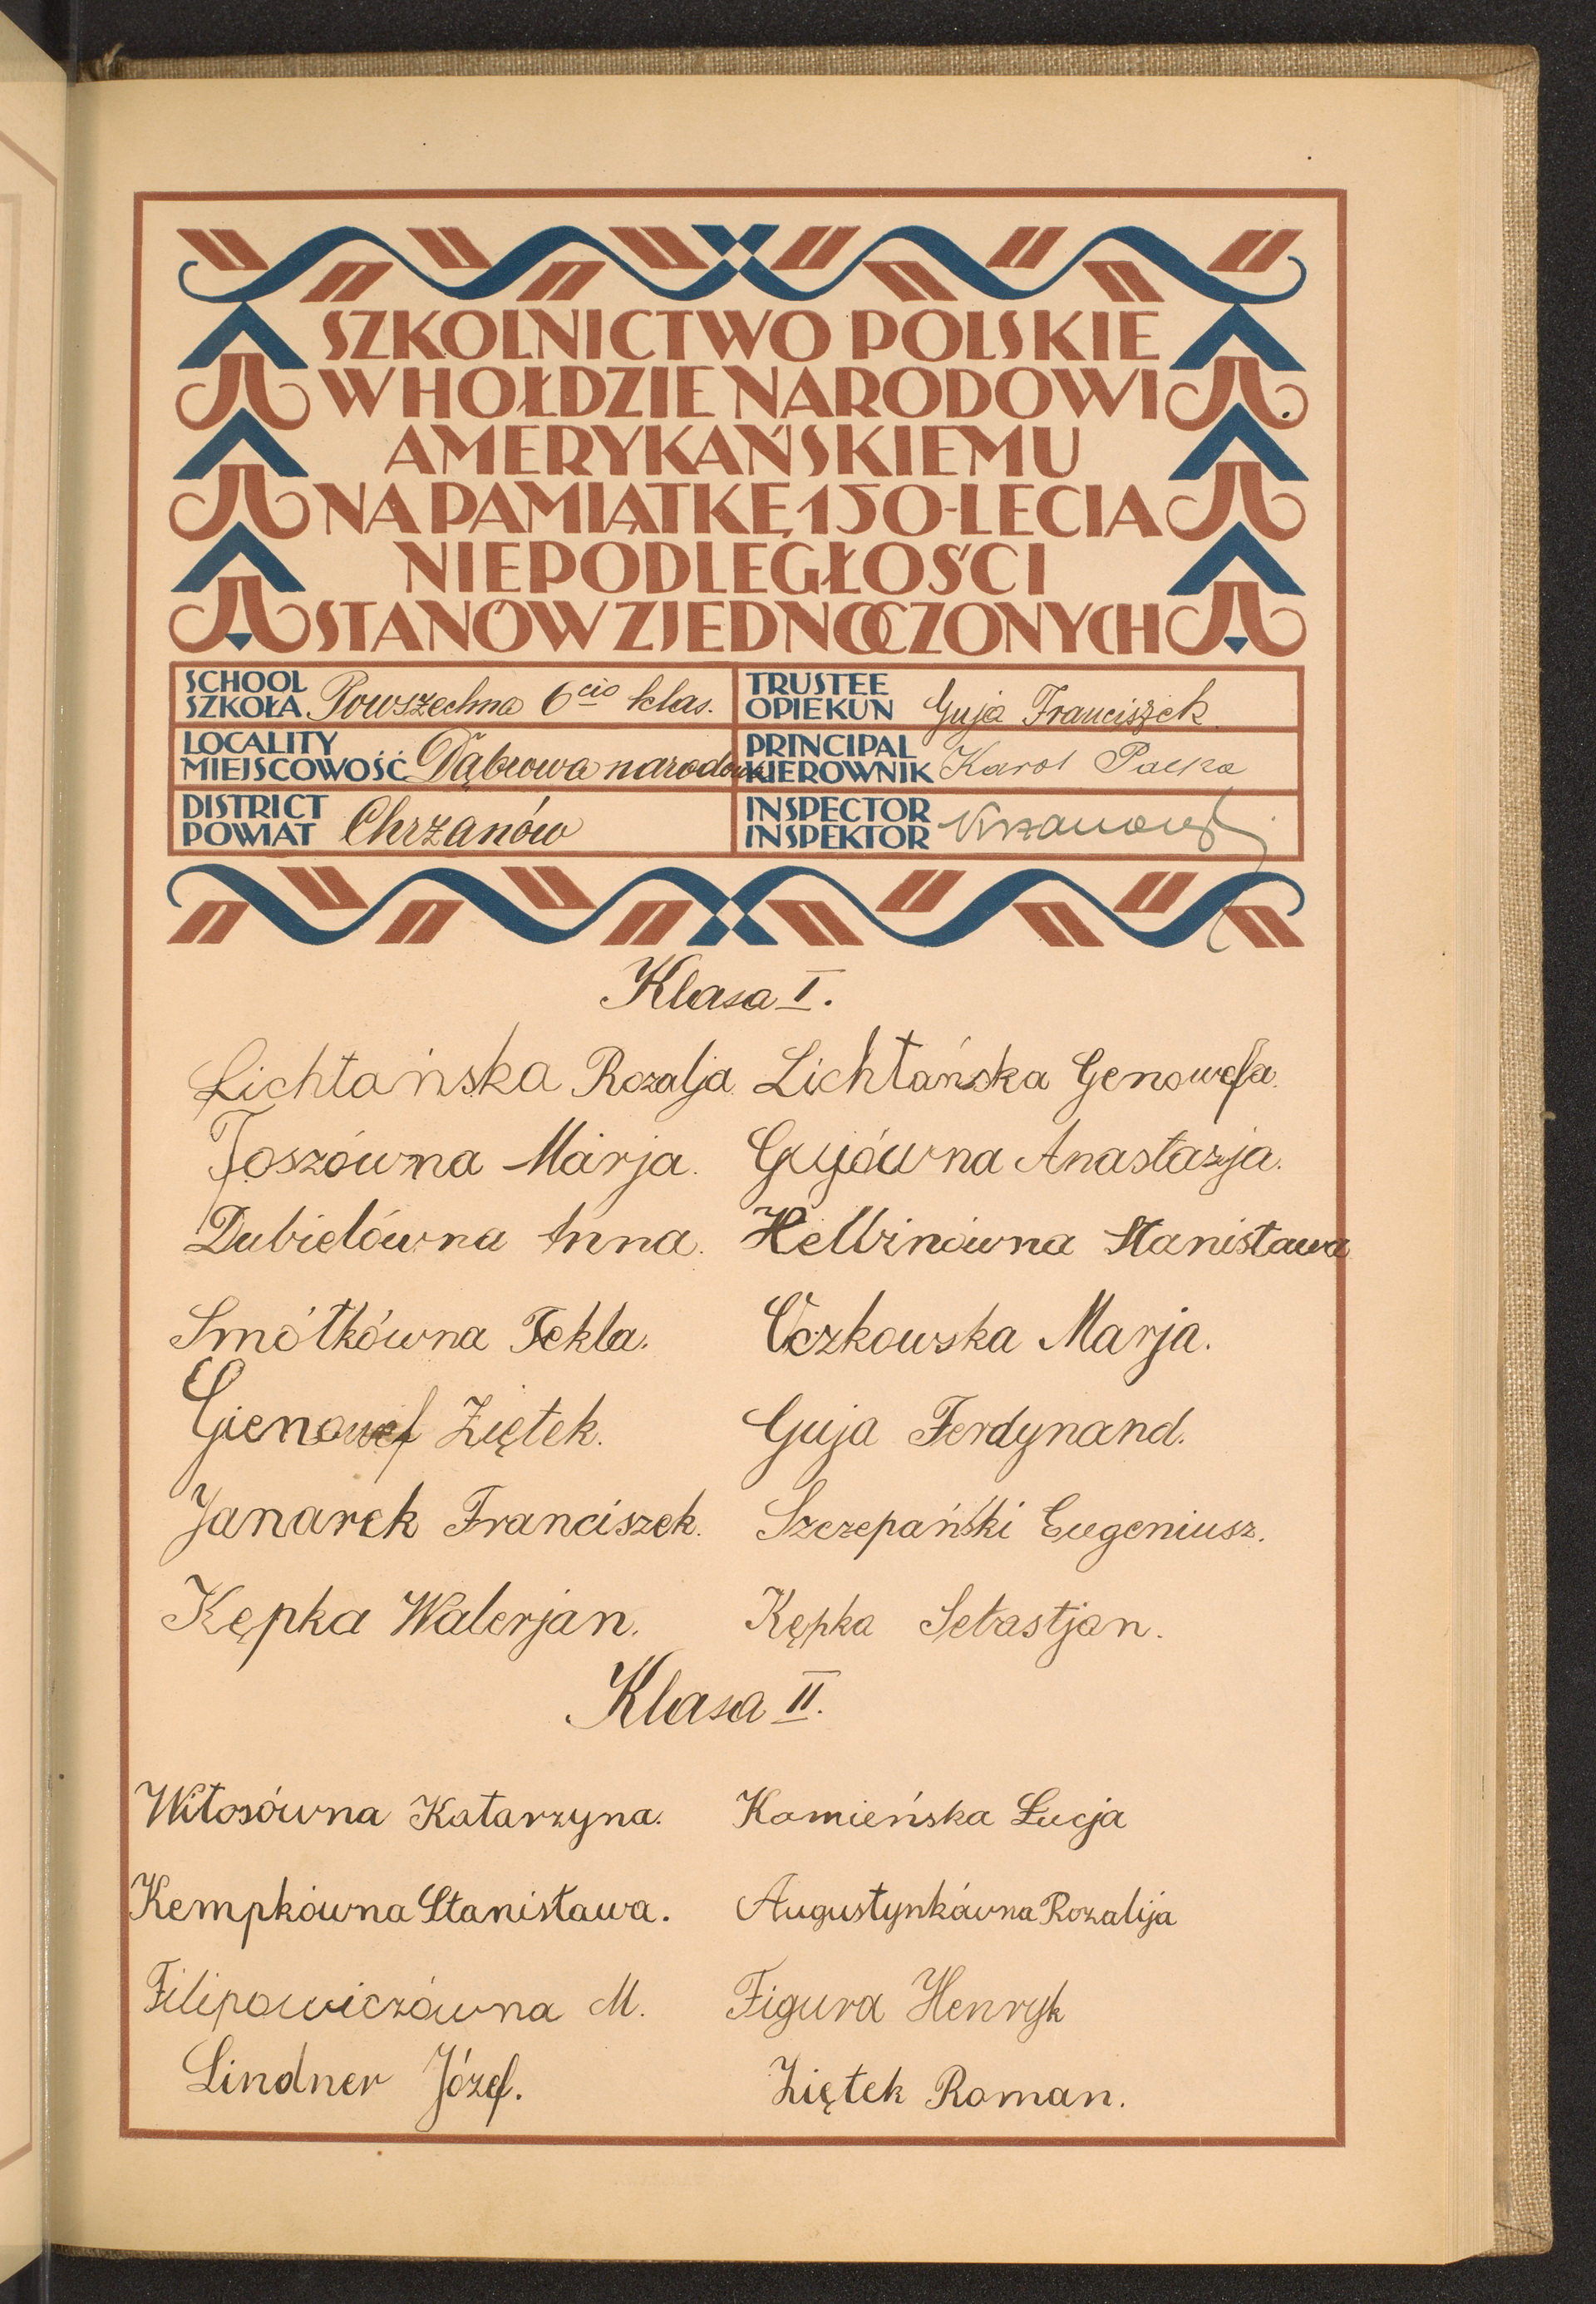 SZKOLNICTWO POLSKIE
W HOŁDZIE NARODOWI
AMERYKAŃSKIEMU
NA PAMIĄTKĘ 150-LECIA
NIEPODLEGŁOŚCI
STANÓW ZJEDNOCZONYCH
SCHOOL
SZKOŁA Powszechna 6cio klas.
TRUSTEE
OPIEKUN Guja Franciszek
LOCALITY
MIEJSCOWOŚĆ Dąbrowa narodowa
PRINCIPAL
KIEROWNIK Karol Palka
DISTRICT
POWIAT Chrzanów
INSPECTOR
INSPEKTOR
Klasa I.
Lichtańska Rozalja. Lichtańska Genowefa.
Toszówna Marja. Gujówna Anastazja.
Dubielówna Anna. Helbinówna Stanisława
Smółkówna Tekla. Oczkowska Marja.
Gienowef Ziętek. Guja Ferdynand.
Janarek Franciszek. Szczepański Eugeniusz.
Kępka Walerjan. Kępka Sebastjan.
Klasa II.
Witosówna Katarzyna. Kamieńska Łucja
Kempkówna Stanisława. Augustynkówna Rozalija
Filipowiczówna M. Figura Henryk
Lindner Józef. Ziętek Roman.